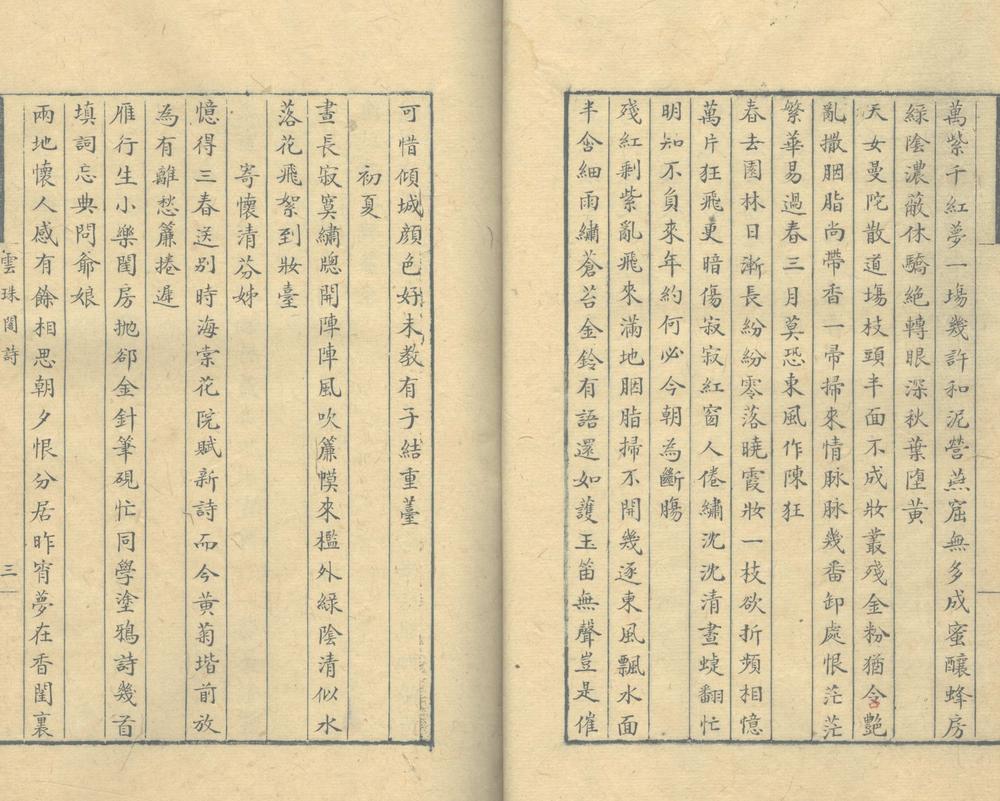 萬紫千紅夢一場幾許和泥營燕窟無多成蜜釀蜂房
綠陰濃蔽休驕絕轉眼深秋葉墮黃
天女曼陀散道塲枝頭半面不成妝叢殘金粉猶含艷
亂撒胭脂尚帶香一帚掃來情脉脉幾番卸處恨茫茫
繁華易過春三月莫恐東風作陳狂
春去園林日漸長紛紛零落曉霞妝一枝欲折頻相憶
萬片狂飛更暗傷寂寂紅窗人倦繡沈沈清晝蜨翻忙
明知不負來年約何必今朝為斷膓
殘紅剩紫亂飛來滿地胭脂掃不開幾逐東風飄水面
半含細雨繡蒼苔金鈴有語還如護玉笛無聲豈是催
可惜傾城顏色好未教有子結重薹
初夏
晝長寂寞繡牕開陣陣風吹簾幙來檻外綠陰清似水
落花飛絮到妝臺
寄懷清芬姊
憶得三春送别時海棠花院賦新詩而今黃菊堦前放
為有離愁簾捲遲
雁行生小樂閨房抛卻金針筆硯忙同學塗鴉詩幾首
填詞忘典問爺娘
兩地懷人感有餘相思朝夕恨分居昨宵夢在香閨裏
雲珠閣詩
三